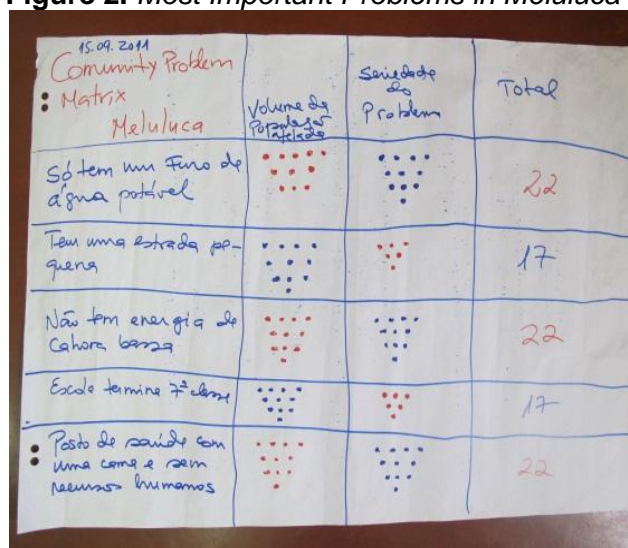 Figure 2. Most Important Problems in Meluluca
15.09.2011
Comunity Problem
Matrix
Meluluca
Volume da
População
afetada
Seriedade
do
Problem
Total
Só tem um Furo de
água potável
22
Tem uma estrada pe-
quena
17
Não tem energia de
Cahora bassa
22
Escola termina 7ª classe
17
Posto de saúde com
uma cama e sem
recursos humanos
22